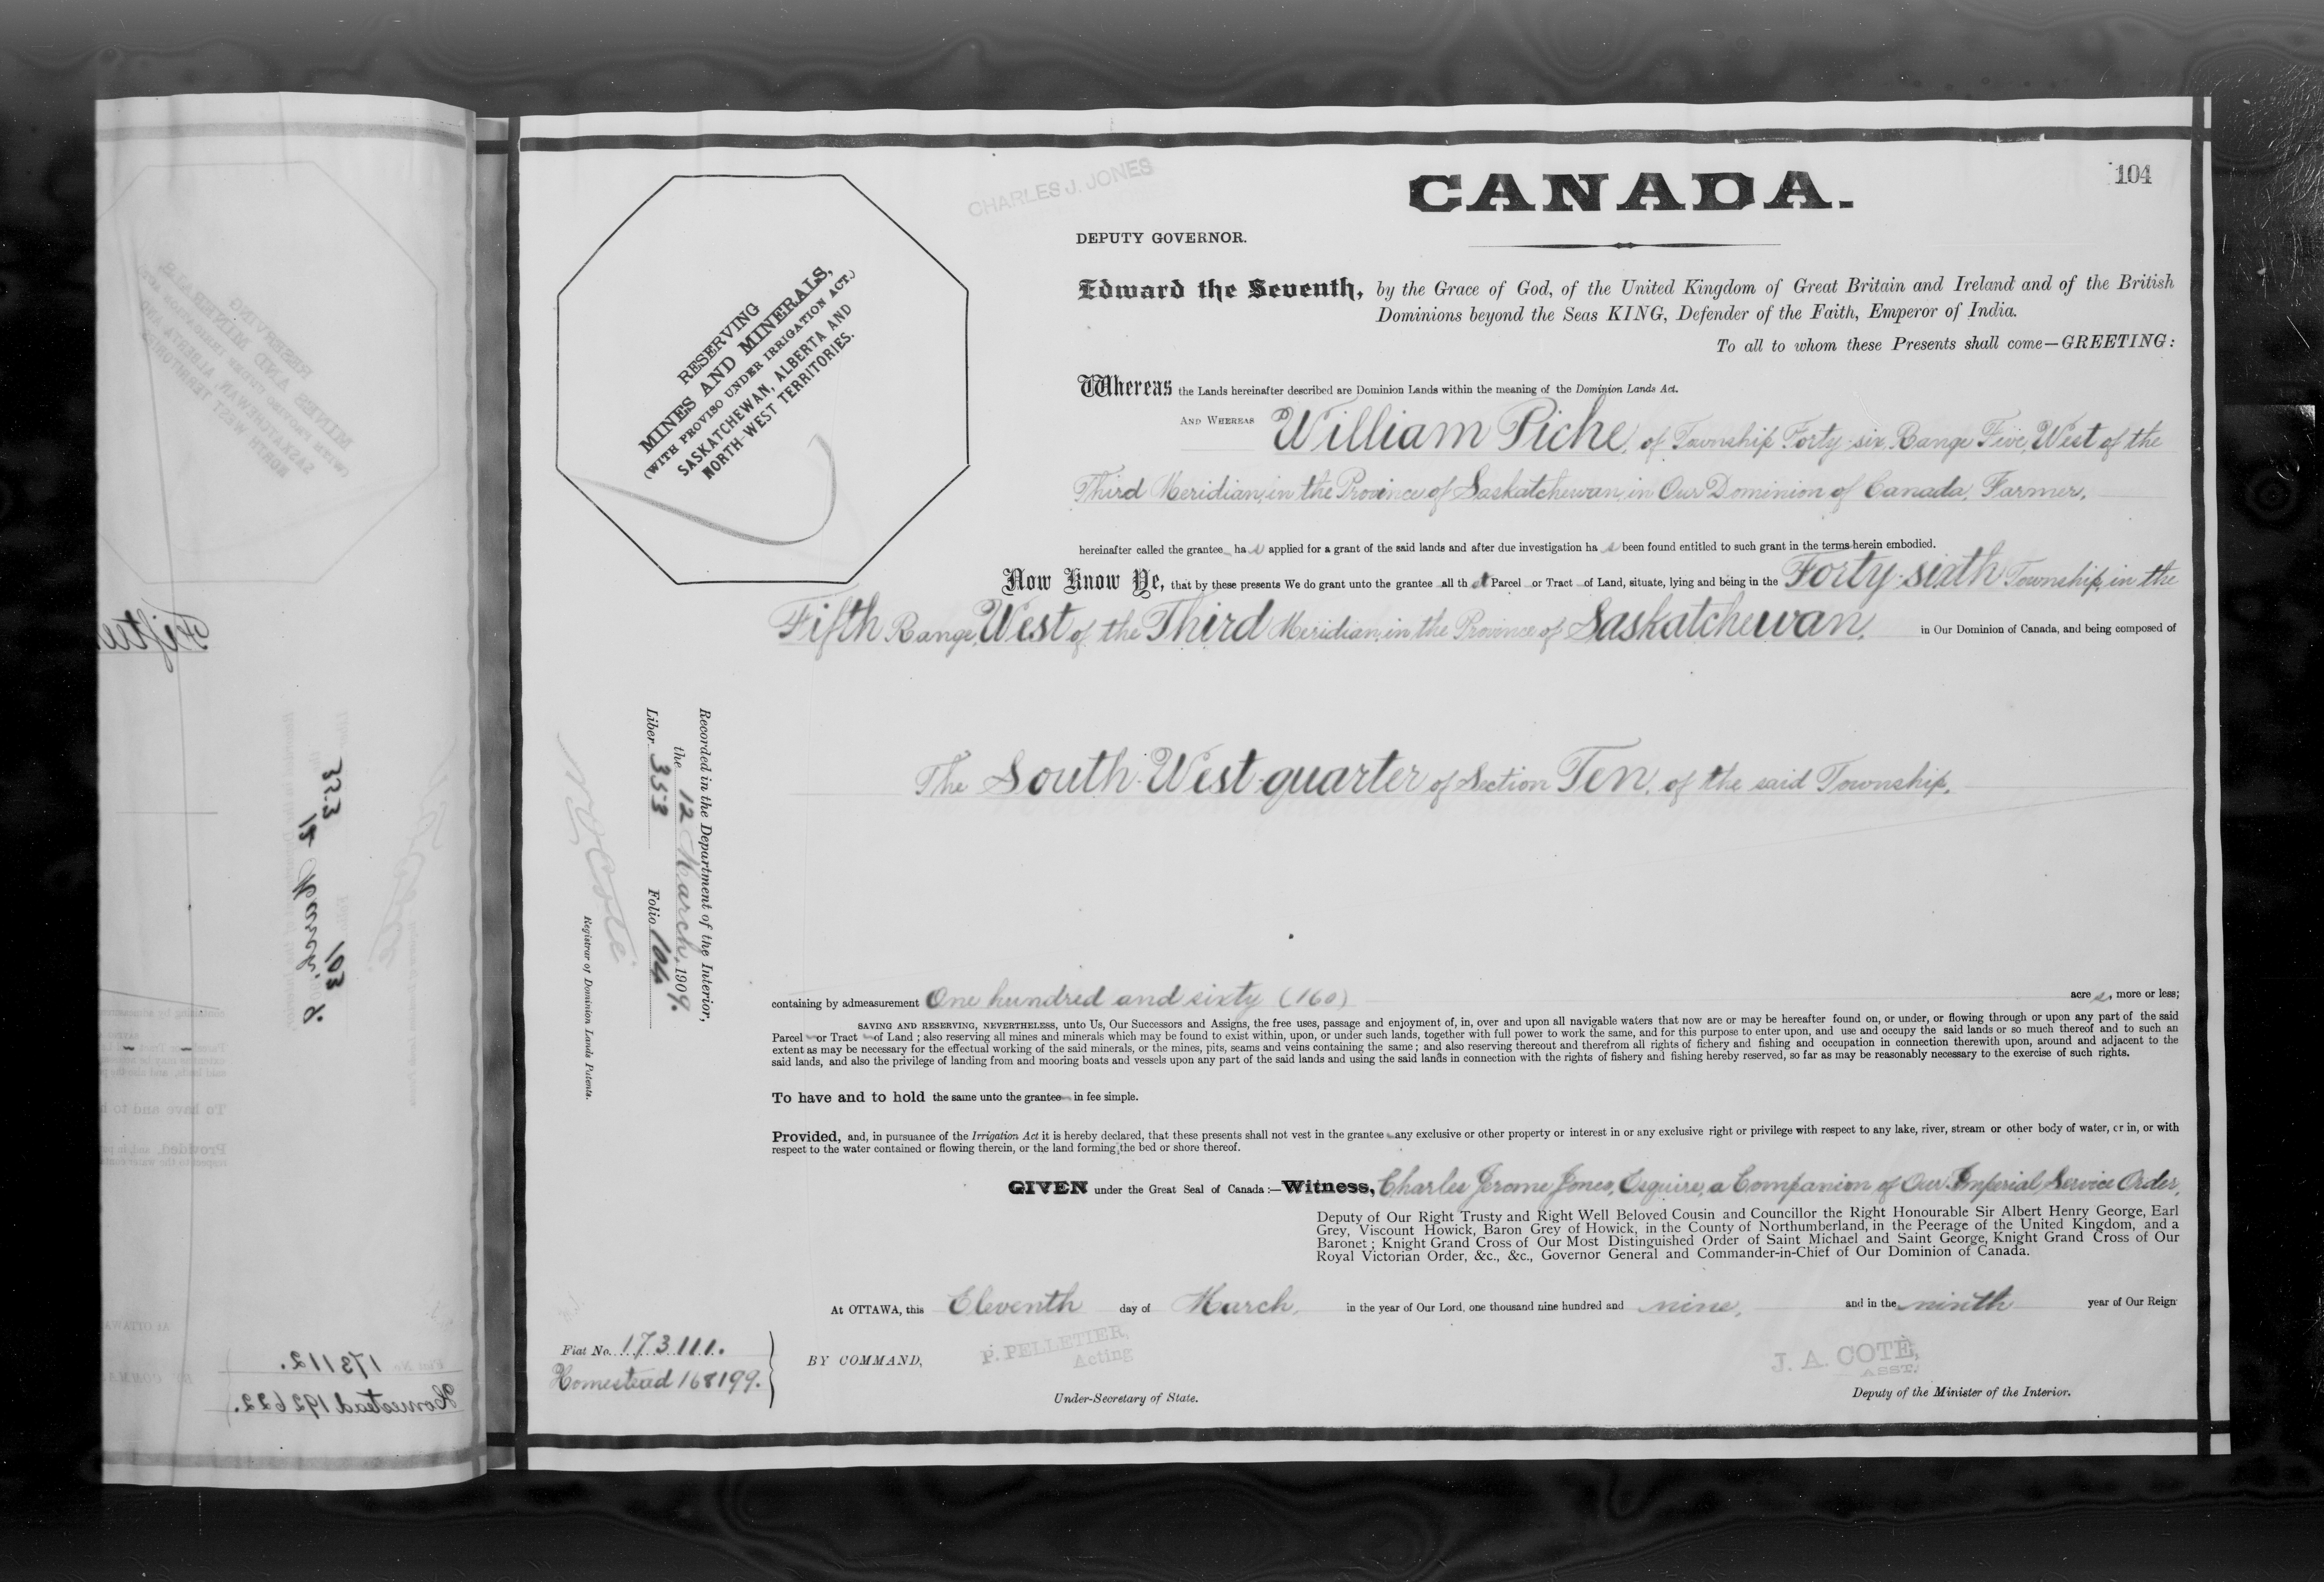 104
CHARLES J. JONES
CANADA.
DEPUTY GOVERNOR.
Edward the Seventh, by the Grace of God, of the United Kingdom of Great Britain and Ireland and of the British
Dominions beyond the Seas KING, Defender of the Faith, Emperor of India.
To all to whom these Presents shall come—GREETING:
RESERVING
MINES AND MINERALS,
(WITH PROVISO UNDER IRRIGATION ACT.)
SASKATCHEWAN, ALBERTA AND
NORTH-WEST TERRITORIES.
Whereas the Lands hereinafter described are Dominion Lands within the meaning of the Dominion Lands Act.
AND WHEREAS William Piche, of Township Forty-six, Range Five, West of the
Third Meridian, in the Province of Saskatchewan, in Our Dominion of Canada, Farmer,
hereinafter called the grantee has applied for a grant of the said lands and after due investigation has been found entitled to such grant in the terms herein embodied.
Now Know Ye, that by these presents We do grant unto the grantee all that Parcel or Tract of Land, situate, lying and being in the Forty-sixth Township, in the
Fifth Range, West of the Third Meridian, in the Province of Saskatchewan, in Our Dominion of Canada, and being composed of
The South-West-quarter of Section Ten, of the said Township,
Recorded in the Department of the Interior,
the 12 March, 1909.
Liber 353 Folio 104
N O Coté
Registrar of Dominion Lands Patents.
containing by admeasurement One hundred and sixty (160) acres, more or less;
SAVING AND RESERVING, NEVERTHELESS, unto Us, Our Successors and Assigns, the free uses, passage and enjoyment of, in, over and upon all navigable waters that now are or may be hereafter found on, or under, or flowing through or upon any part of the said
Parcel or Tract of Land; also reserving all mines and minerals which may be found to exist within, upon, or under such lands, together with full power to work the same, and for this purpose to enter upon, and use and occupy the said lands or so much thereof and to such an
extent as may be necessary for the effectual working of the said minerals, or the mines, pits, seams and veins containing the same; and also reserving thereout and therefrom all rights of fichery and fishing and occupation in connection therewith upon, around and adjacent to the
said lands, and also the privilege of landing from and mooring boats and vessels upon any part of the said lands and using the said lands in connection with the rights of fishery and fishing hereby reserved, so far as may be reasonably necessary to the exercise of such rights.
To have and to hold the same unto the grantee in fee simple.
Provided, and, in pursuance of the Irrigation Act it is hereby declared, that these presents shall not vest in the grantee any exclusive or other property or interest in or any exclusive right or privilege with respect to any lake, river, stream or other body of water, or in, or with
respect to the water contained or flowing therein, or the land forming the bed or shore thereof.
GIVEN under the Great Seal of Canada:—Witness, Charles Jerome Jones, Esquire, a Companion of Our Imperial Service Order,
Deputy of Our Right Trusty and Right Well Beloved Cousin and Councillor the Right Honourable Sir Albert Henry George, Earl
Grey, Viscount Howick, Baron Grey of Howick, in the County of Northumberland, in the Peerage of the United Kingdom, and a
Baronet; Knight Grand Cross of Our Most Distinguished Order of Saint Michael and Saint George, Knight Grand Cross of Our
Royal Victorian Order, &c., &c., Governor General and Commander-in-Chief of Our Dominion of Canada.
At OTTAWA, this Eleventh day of March, in the year of Our Lord, one thousand nine hundred and nine, and in the ninth year of Our Reign
Fiat No. 173111.
Homestead 168199.
BY COMMAND,
P. PELLETIER,
Acting
Under-Secretary of State.
J. A. COTÉ,
ASST.
Deputy of the Minister of the Interior.
Fifteen
353
12 March 9.
103
173112.
Homestead 192622.